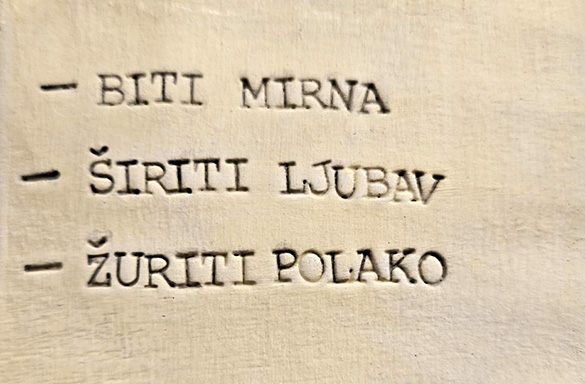 – BITI MIRNA
– ŠIRITI LJUBAV
– ŽURITI POLAKO